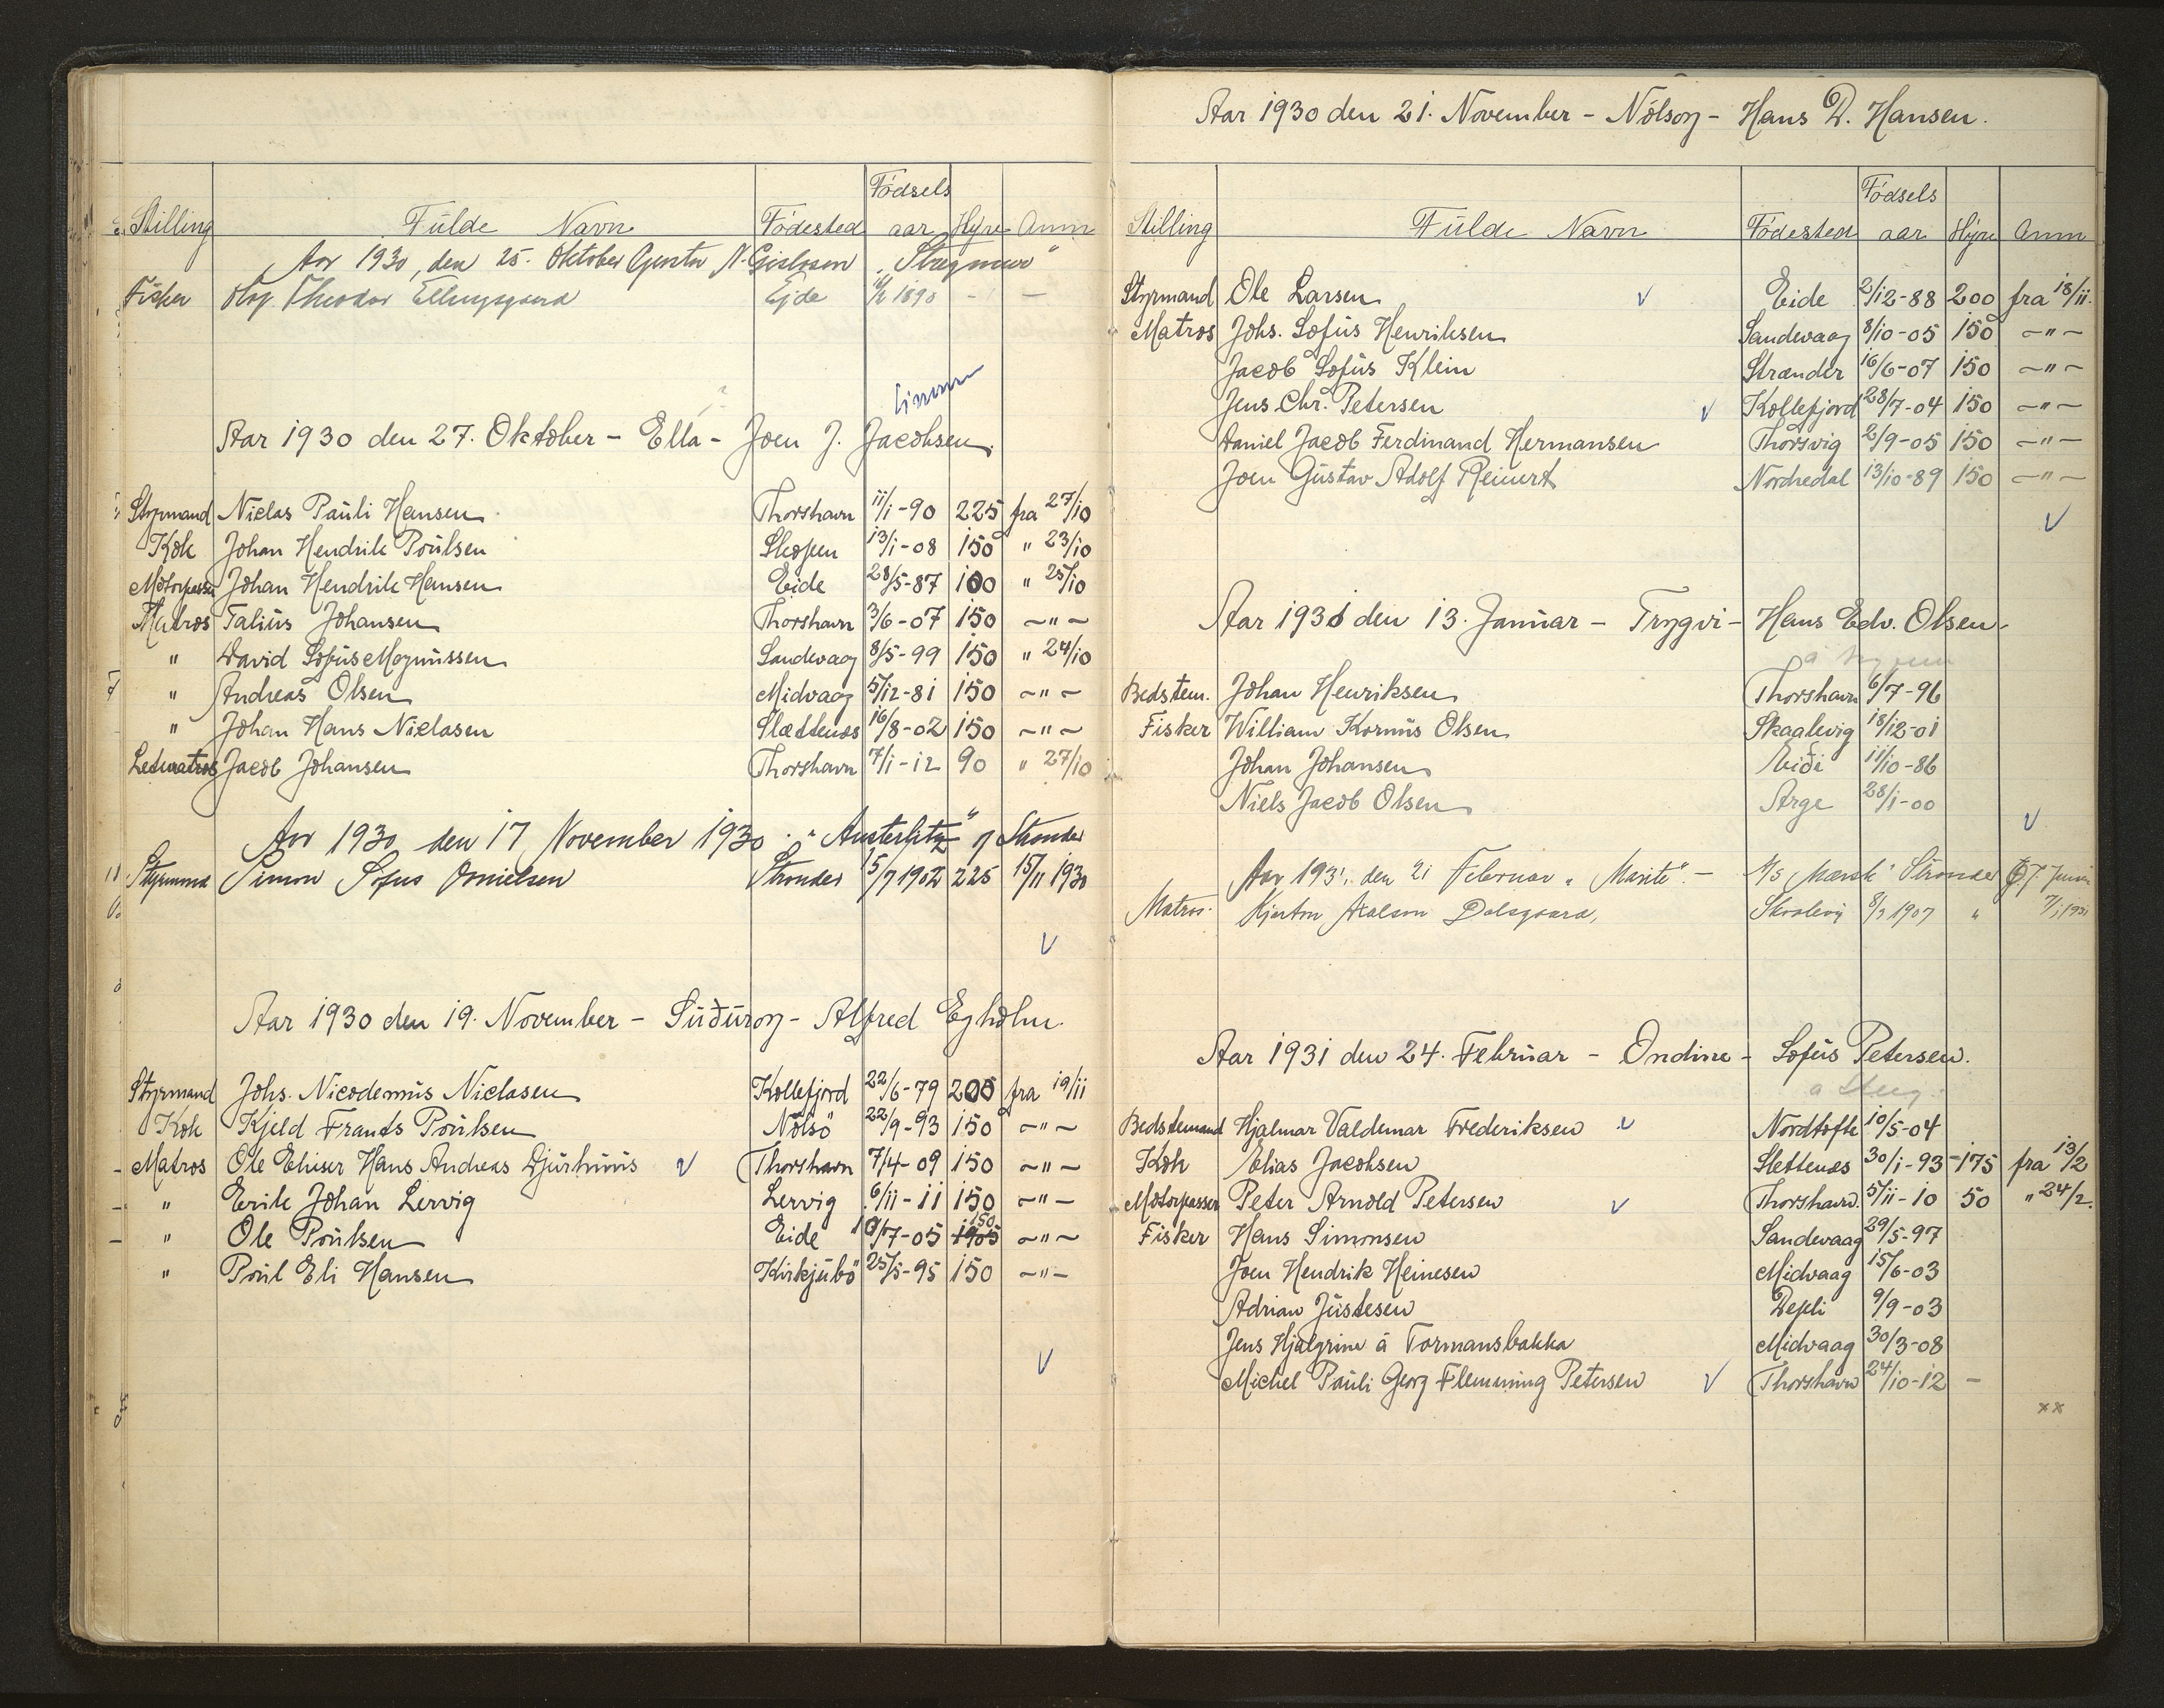 Stilling Fulde Navn Fødested Fødsels aar Hyre Anm
Aar 1930, den 25. Oktober
Fisker Theodor Ellingsgaard Ejde 1890 - -
Aar 1930 den 27. Oktober - Ella - Joen J. Jacobsen.
Styrmand Niclas Pauli Hansen Thorshavn 11/1-90 225 fra 27/10
Kok Johan Hendrik Poulsen Skopen 13/1-08 150 " 23/10
Motorpasser Johan Hendrik Hansen Eide 28/5-87 100 " 25/10
Matros Talius Johansen Thorshavn 3/6-07 150 -"-
" David Sofus Magnussen Sandevaag 8/5-99 150 " 24/10
" Andreas Olsen Midvaag 5/12-81 150 -"-
" Johan Hans Niclasen Slættenæs 16/8-02 150 -"-
Letmatros Jacob Johansen Thorshavn 7/1-12 90 " 27/10
Aar 1930 den 17 November 1930 - "Austerlitz" af Strender
Styrmand Simon Sofus Danielsen Strender 15/7 1902 225 15/11 1930
Aar 1930 den 19. November - Suðuroy - Alfred Egholm.
Styrmand Johs. Nicodemus Niclasen Kollefjord 22/6-79 200 fra 19/11
Kok Kjeld Frants Poulsen Nolsö 22/9-93 150 -"-
Matros Ole Elieser Hans Andreas Djurhuus Thorshavn 7/4-09 150 -"-
" Erik Johan Lervig Lervig 6/11-11 150 -"-
" Ole Poulsen Eide 10/7-05 1905 150 -"-
" Poul Eli Hansen Kirkjubö 25/5-95 150 -"-
Aar 1930 den 21. November - Nólsoy - Hans D. Hansen.
Stilling Fulde Navn Fødested Fødsels aar Hyre Anm
Styrmand Ole Larsen Eide 2/12-88 200 fra 18/11.
Matros Johs. Sofus Henriksen Sandevaag 8/10-05 150 -"-
Jacob Sofus Klein Strænder 16/6-07 150 -"-
Jens Chr. Petersen Kollefjord 28/7-04 150 -"-
Daniel Jacob Ferdinand Hermansen Thorsvig 2/9-05 150 -"-
Joen Gustav Adolf Reinert Nordredal 13/10-89 150 -"-
Aar 1931 den 13. Januar - Trygvi - Hans Edv. Olsen.
Bedstem. Johan Henriksen Thorshavn 6/7-96
Fisker William Kornus Olsen Skaalevig 18/12-01
Johan Johansen Eiði 11/10-86
Niels Jacob Olsen Arge 28/1-00
Aar 1931. den 21 Februar "Marite". -
Matros. Dalsgaard, Skaalevig 8/3 1907 " 7/1 1931
Aar 1931 den 24. Februar - Ondine - Sofus Petersen.
Bedstemand Hjalmar Valdemar Frederiksen Nordtofte 10/5-04
Kok Elias Jacobsen Slettenæs 30/1-93 -175 fra 13/2
Motorpasser Peter Arnold Petersen Thorshavn. 5/11-10 50 " 24/2.
Fisker Hans Simonsen Sandevaag 29/5-97
Joen Hendrik Heinesen Midvaag 15/6-03
Adrian Justesen Depli 9/9-03
Jens Hjalgrim á Tormansbakka Midvaag 30/3-08
Michel Pauli Georg Flemming Petersen Thorshavn 24/10-12 -
xx